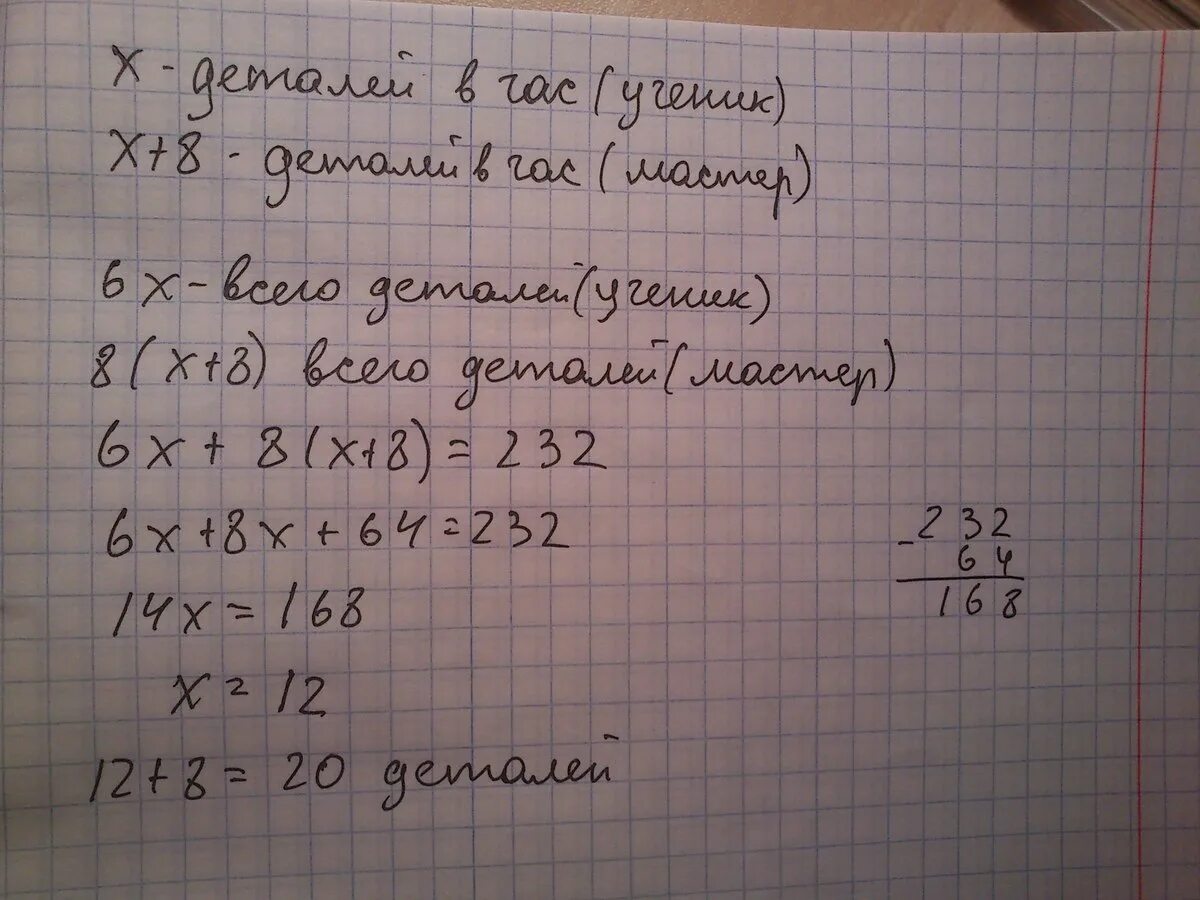 х - деталей в час (ученик)
х+8 - деталей в час (мастер)
6х - всего деталей (ученик)
8(х+8) всего деталей (мастер)
6х + 8(х+8) = 232
6х+8х+64=232
14х = 168
х = 12
12+8 = 20 деталей
-232
64
168